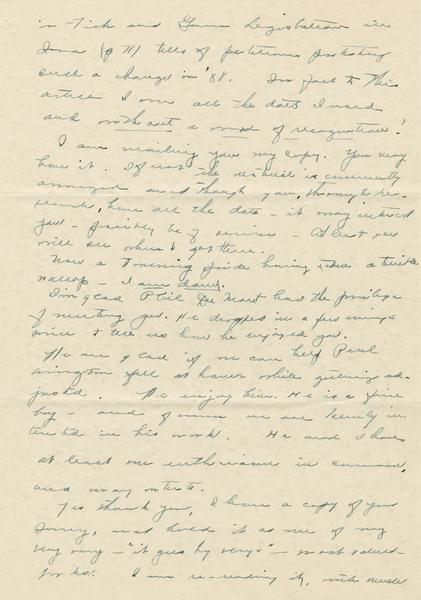 in Fish and Game Legislation in
Iowa (p 71) tells of petitions protesting
such a change in '88. In fact to this
article I owe all the data I used
and without a word of recognition!
I am mailing you my copy. You may
have it. If not the material is conveniently
arranged and though you, through re-
search, have all the data - it may interest
you - possibly be of service - At least you
will see where I got there.
Now a Towering pride having taken a
- I am down.
I'm glad Phil De Mart had the privilege
of meeting you. He dropped in a few evenings
since & tell us how he enjoyed you.
We are glad if we can help Paul
Errington feel at home while getting ad-
justed. We enjoy him. He is a fine
boy - and of course we are keenly in-
terested in his work. He and I have
at least one enthusiasm in common,
and many interests.
Yes thank you, I have a copy of your
Survey, and hived it as one of my
very very - "it goes by verys" - most valued
books. I am re-reading it, with much